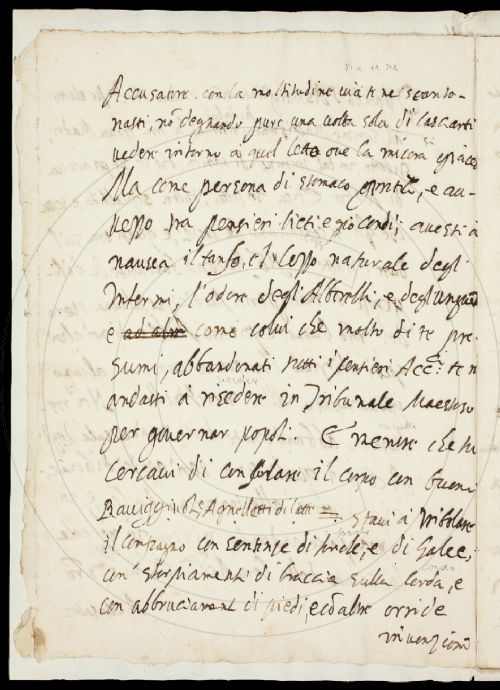 via te ne
Accusatore. con la moltitudine via te ne scanto-
nasti, nõ degnando pure una volta sola di lasciarti
vedere intorno a quel letto ove la misera giace
Ma come persona di stomaco gentil, e au-
vezzo tra pensieri lieti e giocondi; avesti à
nausea il tanfo, e'l lezzo naturale degl'
Infermi, l'odore degl'Alberelli, e degl'unguẽ
e ad altri come colui che molto di te pre-
sumi, abbandonati tutti i sentieri Acc: te n
andasti à risedere in Tribunale Maestoso
per governar popoli. E mentre che tu
cercavi di consolare il corpo con buoni
Raviggiuoli, Agnellotti di latte = stavi à tribolare
il compagno con sentenze di funi, e di Galee,
con storpiamenti di braccia sulla Corda, e
con abbruciament di piedi, e cõ altre orride
invenzioni